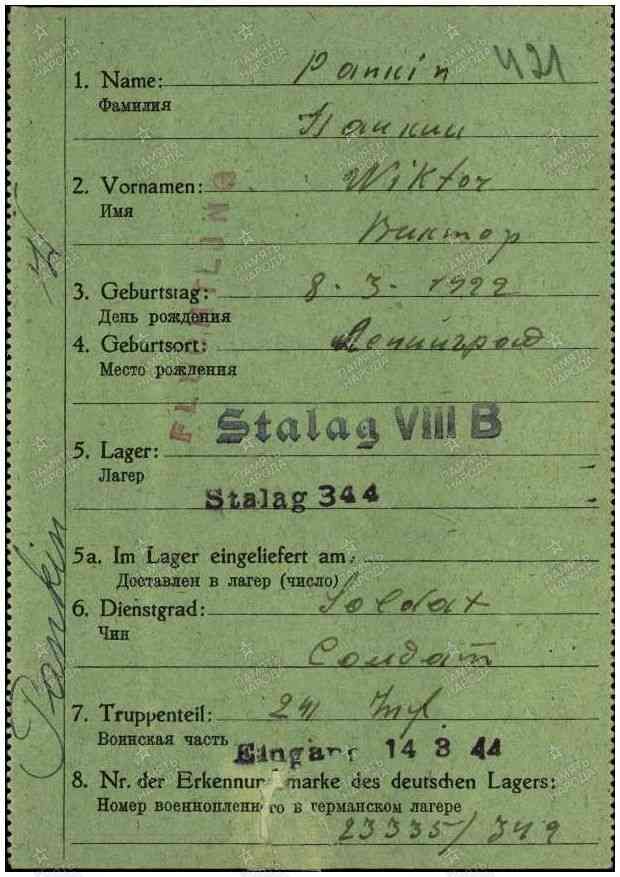 Pankin 421
1. Name:
Фамилия
Панкин
2. Vornamen: Wiktor
Имя
Виктор
3. Geburtstag: 8. 3. 1922
День рождения
4. Geburtsort: Ленинград
Место рождения
FLÜCHTLING
Stalag VIII B
5. Lager:
Лагер
Stalag 344
5a. Im Lager eingeliefert am:
Доставлен в лагер (число)
6. Dienstgrad: Soldat
Чин
Солдат
7. Truppenteil: 241 Inf.
Воинская часть
Eingang 14 3 44
8. Nr. der Erkennungsmarke des deutschen Lagers:
Номер военнопленного в германском лагере
23335/
Pankin
ПАМЯТЬ НАРОДА